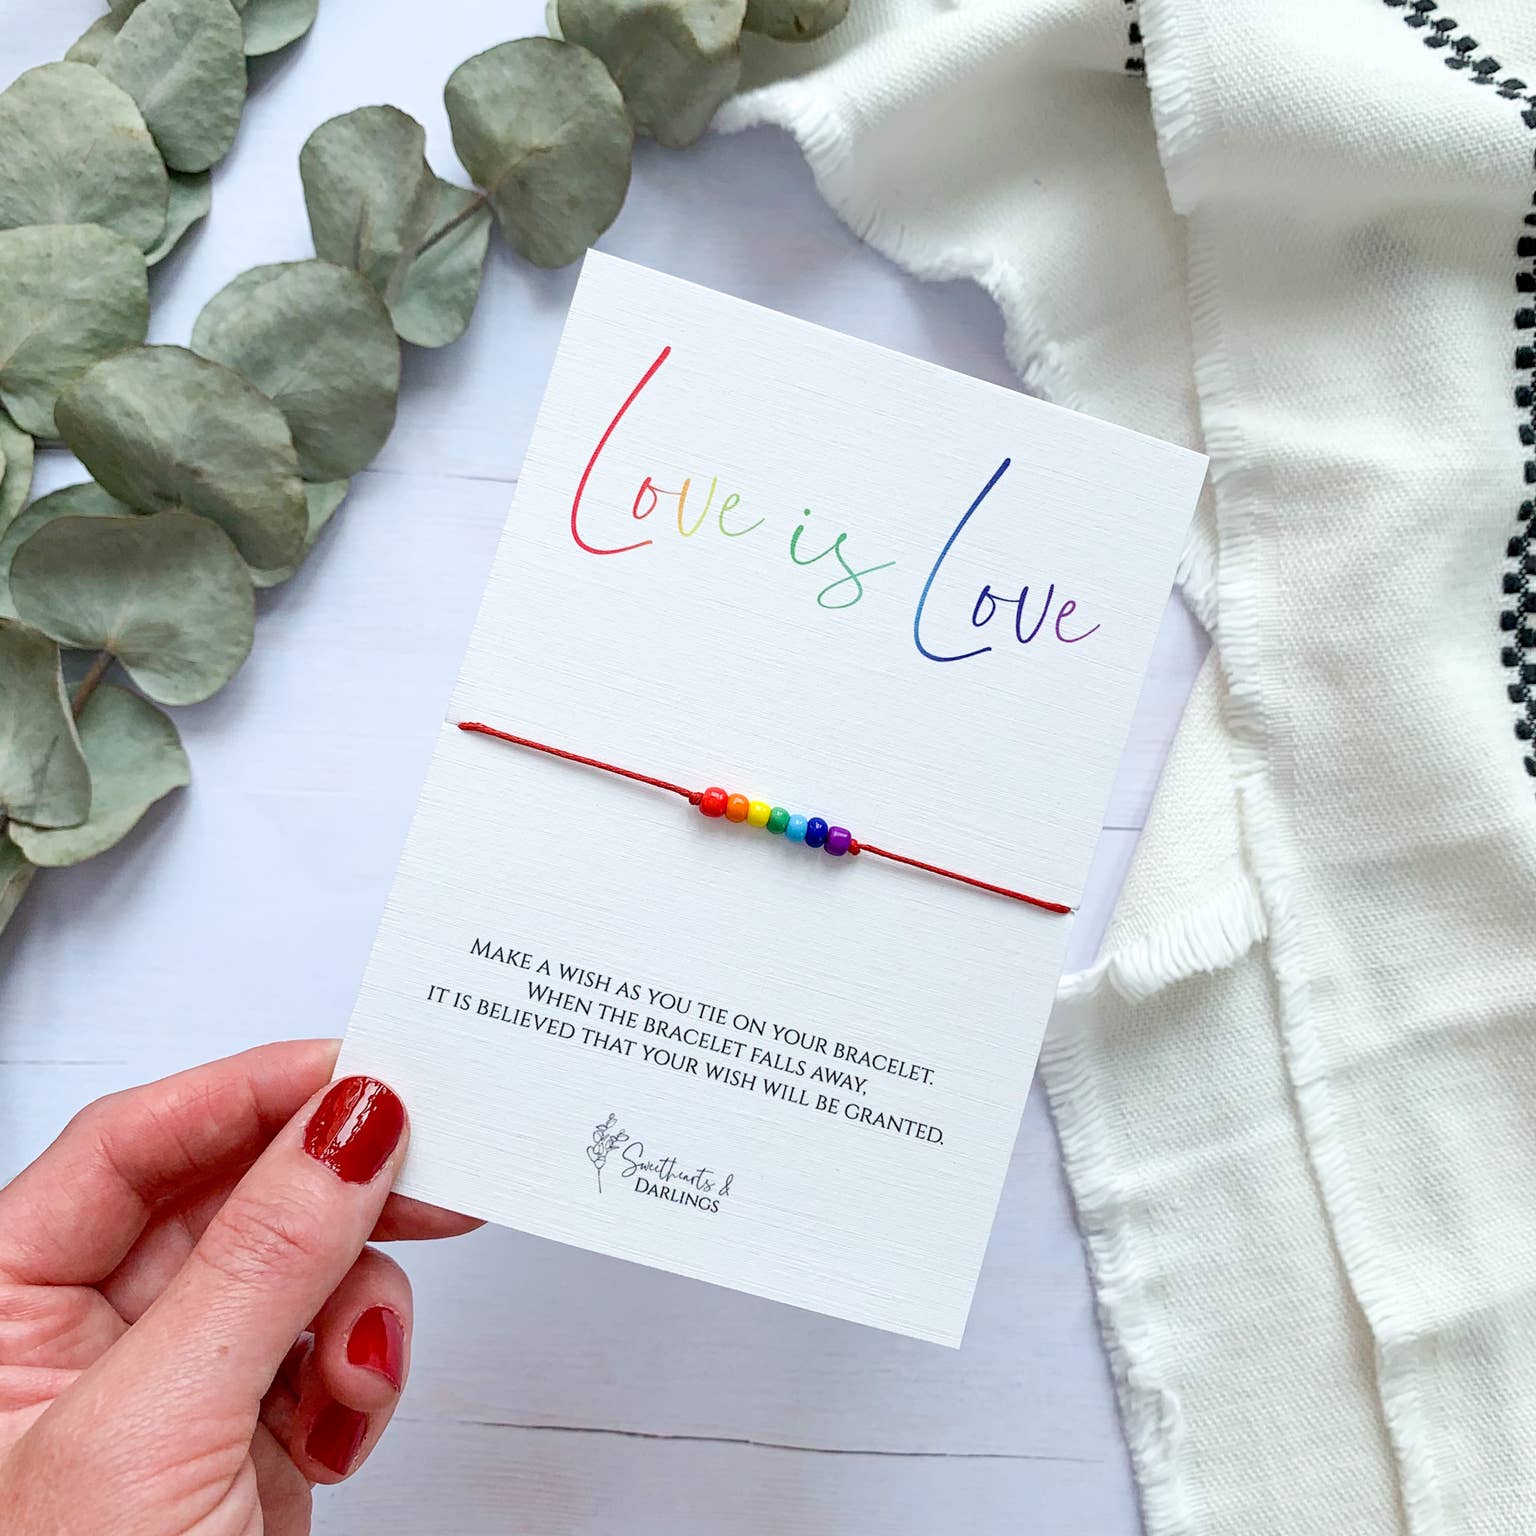 Love is Love
MAKE A WISH AS YOU TIE ON YOUR BRACELET.
WHEN THE BRACELET FALLS AWAY,
IT IS BELIEVED THAT YOUR WISH WILL BE GRANTED.
Sweethearts &
DARLINGS